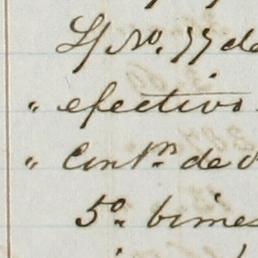 S/ No. 77 de
" efectivo
" Contn de
5o. bimes